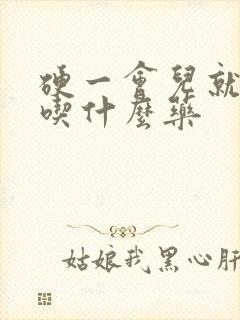 硬一會兒就
喫什麼藥
姑娘我黑心肝